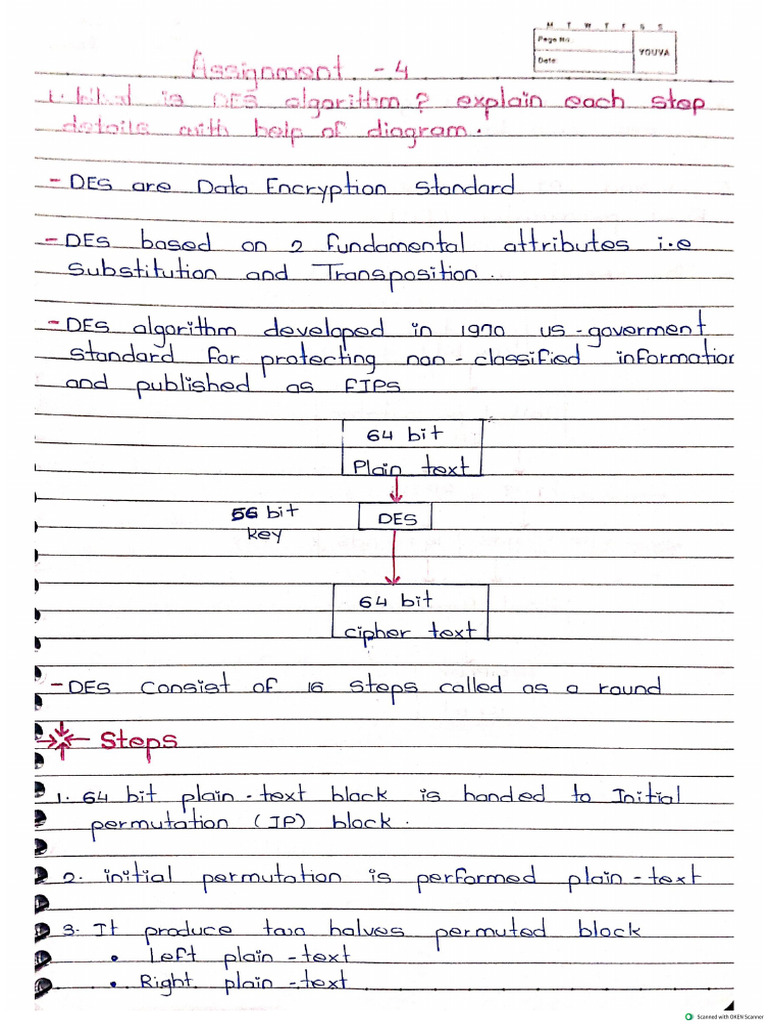 M T W T F S S
Page No.
Date
YOUVA
Assignment - 4
1. What is DES algorithm? explain each step
details with help of diagram.
- DES are Data Encryption Standard
- DES based on 2 fundamental attributes i.e
substitution and Transposition.
- DES algorithm developed in 1970 us-goverment
standard for protecting non-classified information
and published as FIPS
64 bit
Plain text
56 bit
key
DES
64 bit
cipher text
- DES consist of 16 steps called as a round
Steps
1. 64 bit plain-text block is handed to Initial
permutation (IP) block.
2. initial permutation is performed plain-text
3. It produce two halves permuted block
• Left plain-text
• Right plain-text
Scanned with OKEN Scanner